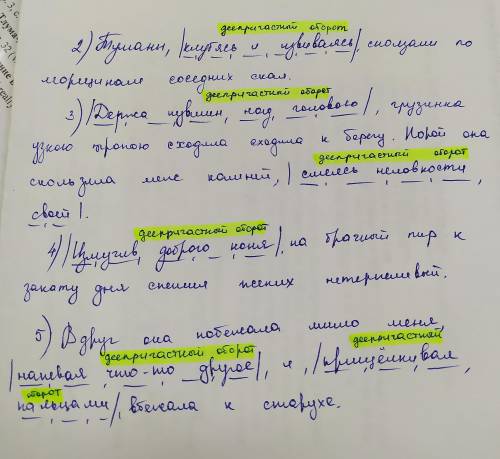 деепричастный оборот
2) Туманы, |клубясь и извиваясь|, сползали по
морщинам соседних скал.
деепричастный оборот
3) |Держа кувшин, над головою|, грузинка
узкою тропою сходила сходила к берегу. Порой она
деепричастный оборот
скользила меж камней, | смеясь неловкости
своей |.
деепричастный оборот
4) |Измучив доброго коня|, на брачный пир к
закату дня спешил жених нетерпеливый.
5) Вдруг она побежала мимо меня,
деепричастный оборот деепричастный
|напевая что-то другое|, и, |прищёлкивая
оборот
пальцами|, вбежала к старухе.